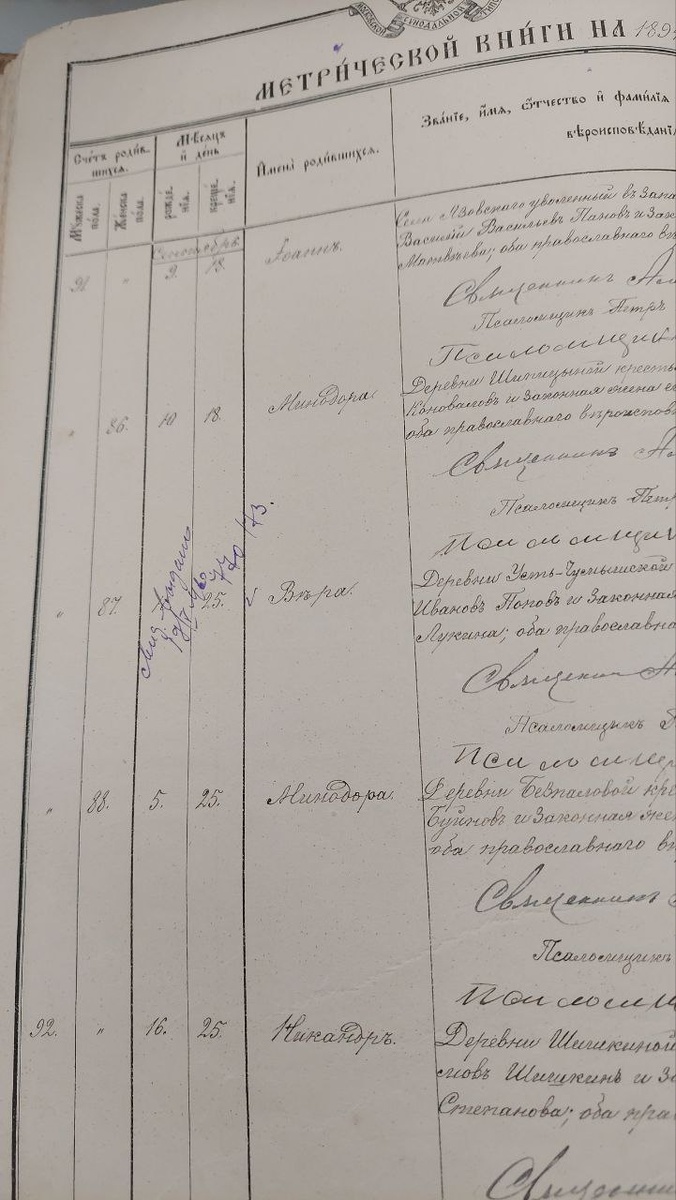 МЕТРИ́ЧЕСКОЙ КНИ́ГИ НА 189
Счётъ родив-
шихся.
Мѣсяцъ
и день
Имена родившихся.
Званіе, имя, отчество и фамилія
вѣроисповѣданія
Мужеска
пола.
Женска
пола.
рожде-
нія.
креще-
нія.
Сентябрь.
91 " 9. 18. Іоаннъ.
Села Язовскаго уволенный въ запа
Василій Васильевъ Пановъ и зак
Матвѣева; оба православнаго вѣ
Священникъ Ал
Псаломщикъ Петръ
Псаломщик
" 86. 10 18. Минодора.
Деревни Шипицыной кресть
Коноваловъ и законная жена е
оба православнаго вѣроисповѣ
Священникъ Ал
Псаломщикъ Петр
Псаломщи
" 87. 25. Вѣра.
Деревни Усть-Чумышской
Ивановъ Поповъ и законная
Лукина; оба православна
Священник
Псаломщикъ
Псаломщи
" 88. 5. 25. Минодора.
Деревни Безпаловой кре
Буйновъ и законная жен
оба православнаго вѣ
Священникъ
Псаломщикъ
Псаломщ
92. " 16. 25. Никандръ.
Деревни Шишкиной
мовъ Шишкинъ и За
Степанова; оба пра
Священни